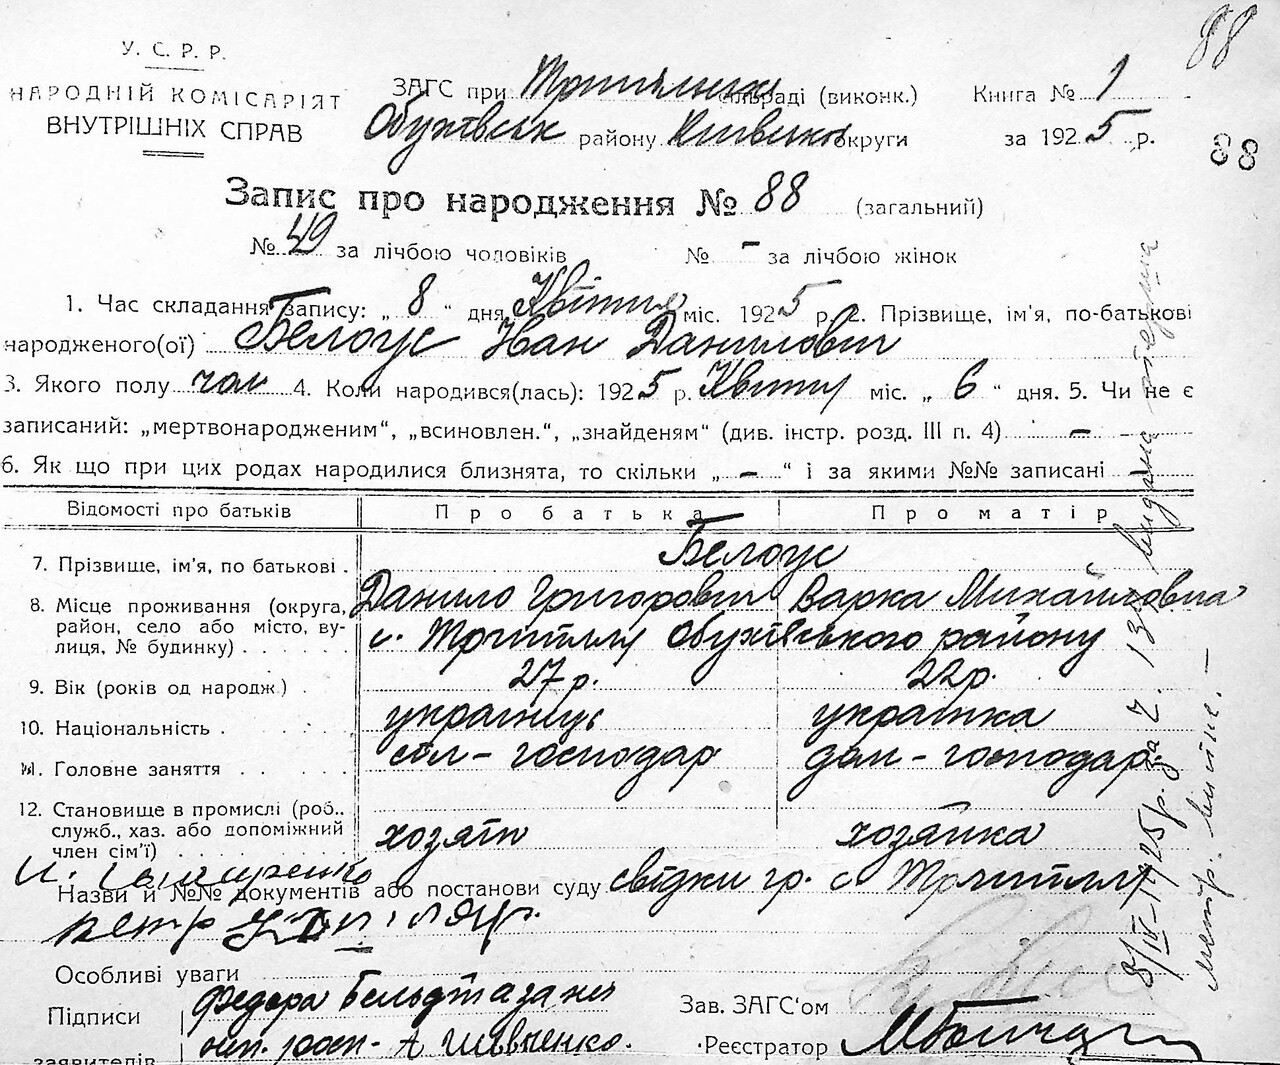 88
У. С. Р. Р.
НАРОДНІЙ КОМІСАРІЯТ
ВНУТРІШНІХ СПРАВ
ЗАГС при сільраді (виконк.)
Обухівськ району Київськ округи
Книга № 1
за 1925 р.
88
Запис про народження № 88 (загальний)
№ 49 за лічбою чоловіків № - за лічбою жінок
1. Час складання запису: „ 8 “ дня Квітня міс. 1925 р. 2. Прізвище, ім'я, по-батькові
народженого(ої) Белоус Иван Данилович
3. Якого полу чол 4. Коли народився(лась): 1925 р. Квітня міс. „ 6 “ дня. 5. Чи не є
записаний: „мертвонародженим“, „всиновлен.“, „знайденям“ (див. інстр. розд. III п. 4) -
6. Як що при цих родах народилися близнята, то скільки „ - “ і за якими №№ записані
Відомості про батьків Про батька Про матір
Белоус
7. Прізвище, ім'я, по батькові .
Данило Григорович Варка Михайловна
8. Місце проживання (округа, район, село або місто, вулиця, № будинку)
с. Трипілля Обухівського району
9. Вік (років од народж.) . 27 р. 22 р.
10. Національність . українець українка
11. Головне заняття сіл - господар дом - господар.
12. Становище в промислі (роб., служб., хаз. або допоміжний член сім'ї)
хозяїн хозяйка
Назви й №№ документів або постанови суду свідки гр. с Трипілля
Особливі уваги
Підписи
заявителів
Федора
А Шевченко.
Зав. ЗАГС'ом
Реєстратор
8/IV-1925 р. за Ч. 13 видана
метр. витяг. -